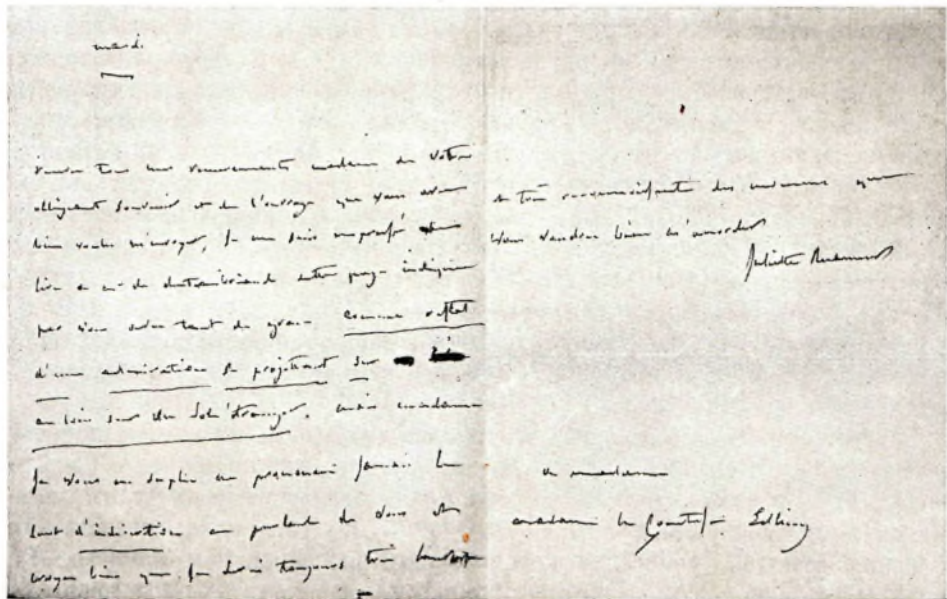 mardi
tous mes remerciements madame de votre
obligeant souvenir et de l'ouvrage que vous avez
bien voulu m'envoyer, je me suis empressée
lire a mr de chateaubriand cette page indiquée
par vous avec tant de grace comme reflet
d'une admiration se projettant sur
au loin sur un sol étranger. mais madame
je vous en supplie ne prononcez jamais le
mot d'indiscrétion en parlant de vous et
croyez bien que je serai toujours très
et très reconnaissante des que
vous voudrez bien m'accorder
Juliette
a madame
madame la Comtesse Edling